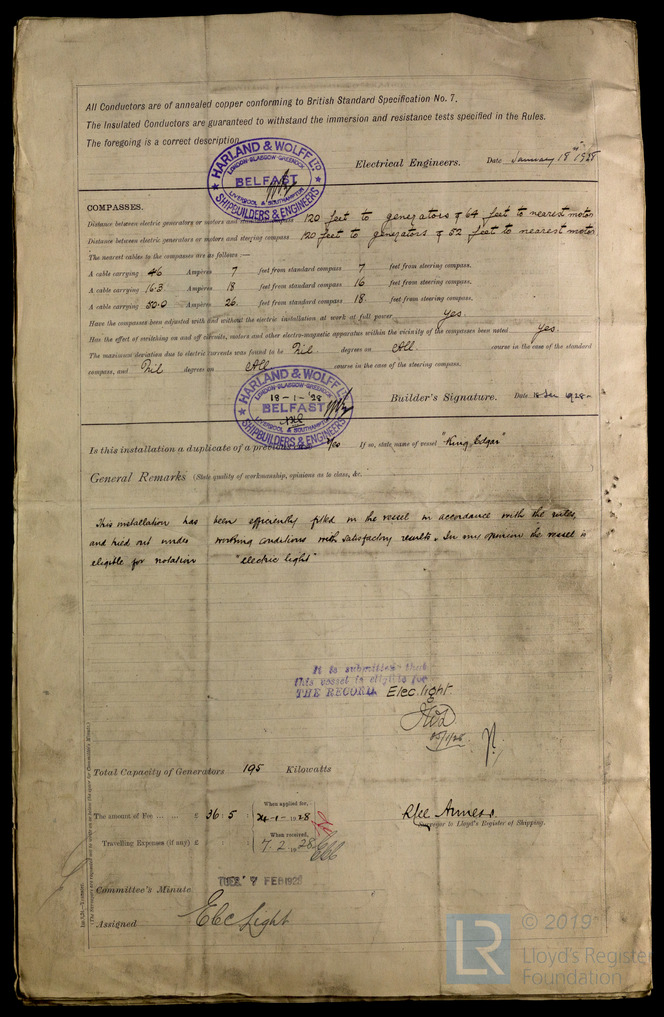 All Conductors are of annealed copper conforming to British Standard Specification No. 7.
The Insulated Conductors are guaranteed to withstand the immersion and resistance tests specified in the Rules.
The foregoing is a correct description.
HARLAND & WOLFF LTD
LONDON-GLASGOW-GREENOCK
BELFAST
LIVERPOOL & SOUTHAMPTON
SHIPBUILDERS & ENGINEERS
Electrical Engineers. Date January 18th 1928
COMPASSES.
Distance between electric generators or motors and standard compass 120 feet to generators & 64 feet to nearest motor
Distance between electric generators or motors and steering compass 120 feet to generators & 52 feet to nearest motor
The nearest cables to the compasses are as follows:—
A cable carrying 46 Ampères 7 feet from standard compass 7 feet from steering compass.
A cable carrying 16.3 Ampères 18 feet from standard compass 16 feet from steering compass.
A cable carrying 50.0 Ampères 26 feet from standard compass 18 feet from steering compass.
Have the compasses been adjusted with and without the electric installation at work at full power yes.
Has the effect of switching on and off circuits, motors and other electro-magnetic apparatus within the vicinity of the compasses been noted yes.
The maximum deviation due to electric currents was found to be Nil degrees on All course in the case of the standard
compass, and Nil degrees on All course in the case of the steering compass.
HARLAND & WOLFF LTD
LONDON-GLASGOW-GREENOCK
18-1-'28
BELFAST
LIVERPOOL & SOUTHAMPTON
SHIPBUILDERS & ENGINEERS
Builder's Signature. Date 18 Jan 1928
Is this installation a duplicate of a previous case Yes If so, state name of vessel "King Edgar"
General Remarks (State quality of workmanship, opinions as to class, &c.
This installation has been efficiently fitted in the vessel in accordance with the rules,
and tried out under working conditions with satisfactory results. In my opinion the vessel is
eligible for notation "electric light"
It is submitted that
this vessel is eligible for
THE RECORD. Elec. light.
Total Capacity of Generators 195 Kilowatts
The amount of Fee ... £ 36 : 5 : When applied for, 24-1-1928
Surveyor to Lloyd's Register of Shipping.
Travelling Expenses (if any) £ When received, 7.2.1928
Committee's Minute TUES. 7 FEB 1928
Assigned Elec Light
© 2019
LR Lloyd's Register
Foundation